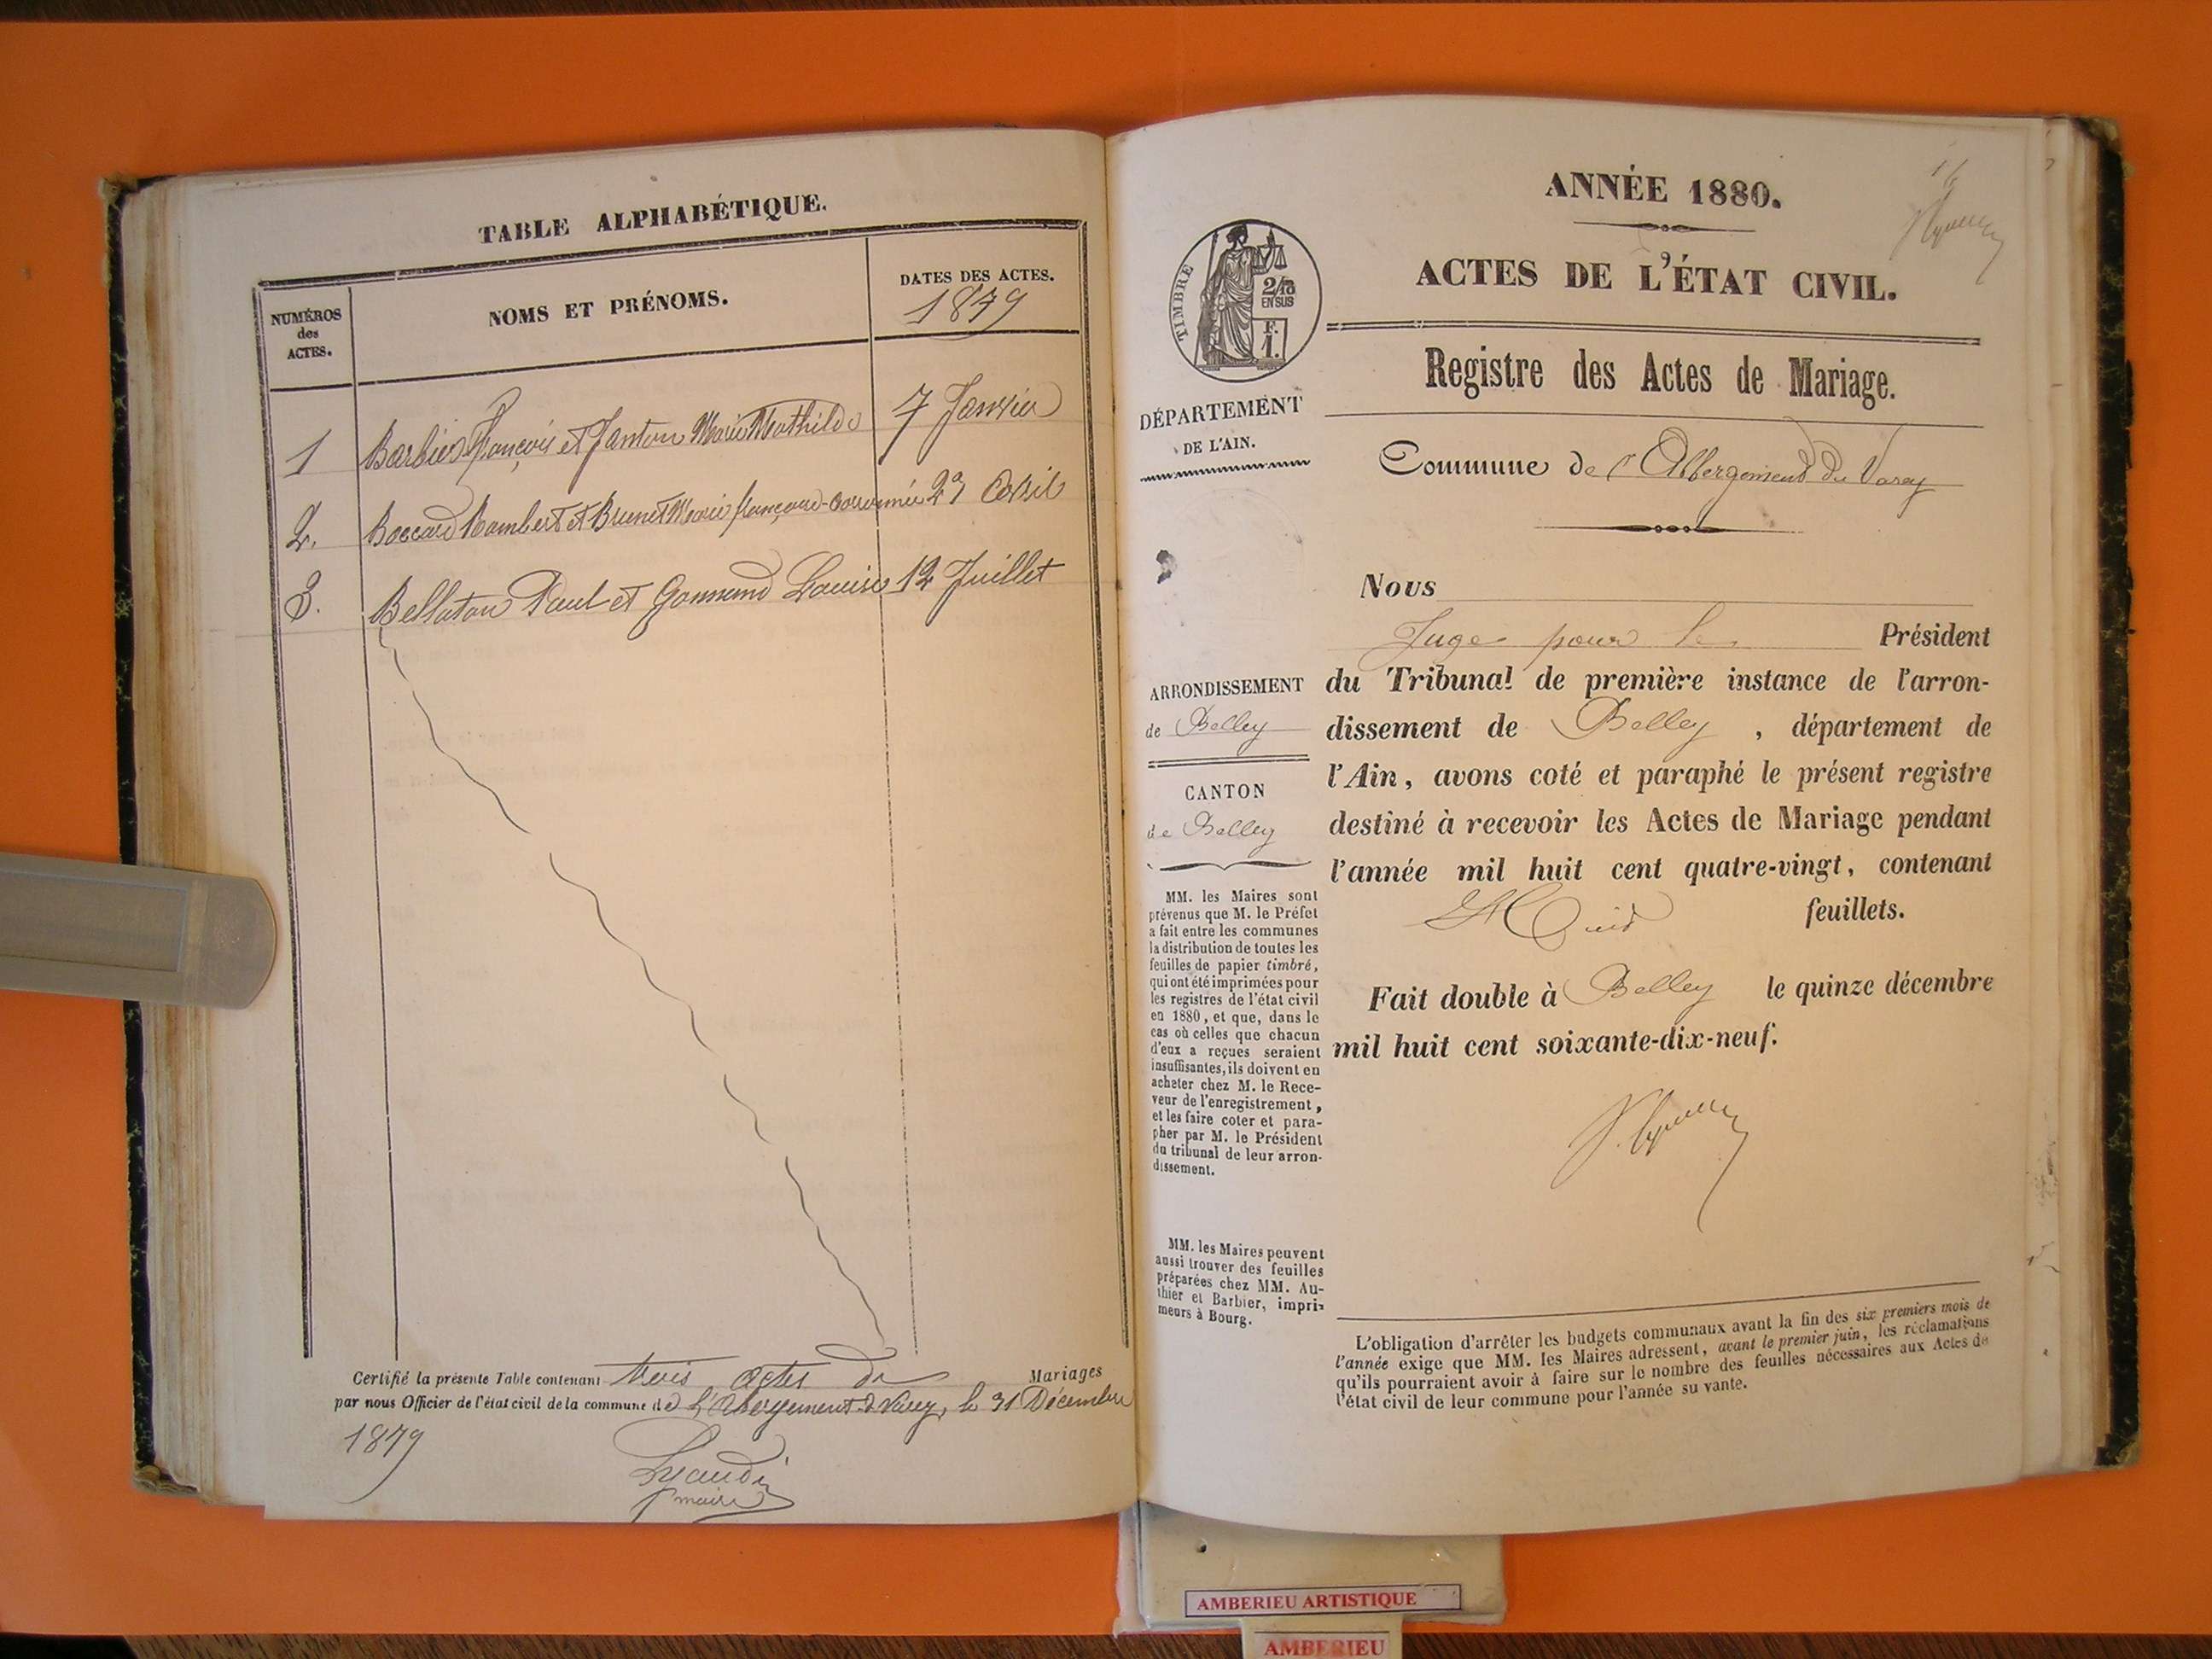 TABLE ALPHABÉTIQUE.
NUMÉROS
des
ACTES.
NOMS ET PRÉNOMS.
DATES DES ACTES.
1879
1 Barbier François et Janton Marie Mathilde 7 Janvier
2. Boccard Rambert et Brunet Marie françoise 29 Avril
3. Bellaton Paul et Louise 12 Juillet
Certifié la présente Table contenant trois actes de Mariages
par nous Officier de l'état civil de la commune de L'Abergement-d-Varey, le 31 Décembre
1879
maire
ANNÉE 1880.
16
ACTES DE L'ÉTAT CIVIL.
TIMBRE
2/10
EN SUS
F.
1.
DÉPARTEMENT
DE L'AIN.
Registre des Actes de Mariage.
Commune de l'Abbergement du Varey
Nous
Juge pour le Président
du Tribunal de première instance de l'arron-
dissement de Belley, département de
l'Ain, avons coté et paraphé le présent registre
destiné à recevoir les Actes de Mariage pendant
l'année mil huit cent quatre-vingt, contenant
feuillets.
Fait double à Belley le quinze décembre
mil huit cent soixante-dix-neuf.
ARRONDISSEMENT
de Belley
CANTON
de Belley
MM. les Maires sont
prévenus que M. le Préfet
a fait entre les communes
la distribution de toutes les
feuilles de papier timbré,
qui ont été imprimées pour
les registres de l'état civil
en 1880, et que, dans le
cas où celles que chacun
d'eux a reçues seraient
insuffisantes, ils doivent en
acheter chez M. le Rece-
veur de l'enregistrement,
et les faire coter et para-
pher par M. le Président
du tribunal de leur arron-
dissement.
MM. les Maires peuvent
aussi trouver des feuilles
préparées chez MM. Au-
thier et Barbier, impri-
meurs à Bourg.
L'obligation d'arrêter les budgets communaux avant la fin des six premiers mois de
l'année exige que MM. les Maires adressent, avant le premier juin, les réclamations
qu'ils pourraient avoir à faire sur le nombre des feuilles nécessaires aux Actes de
l'état civil de leur commune pour l'année su vante.
AMBERIEU ARTISTIQUE
AMBERIEU